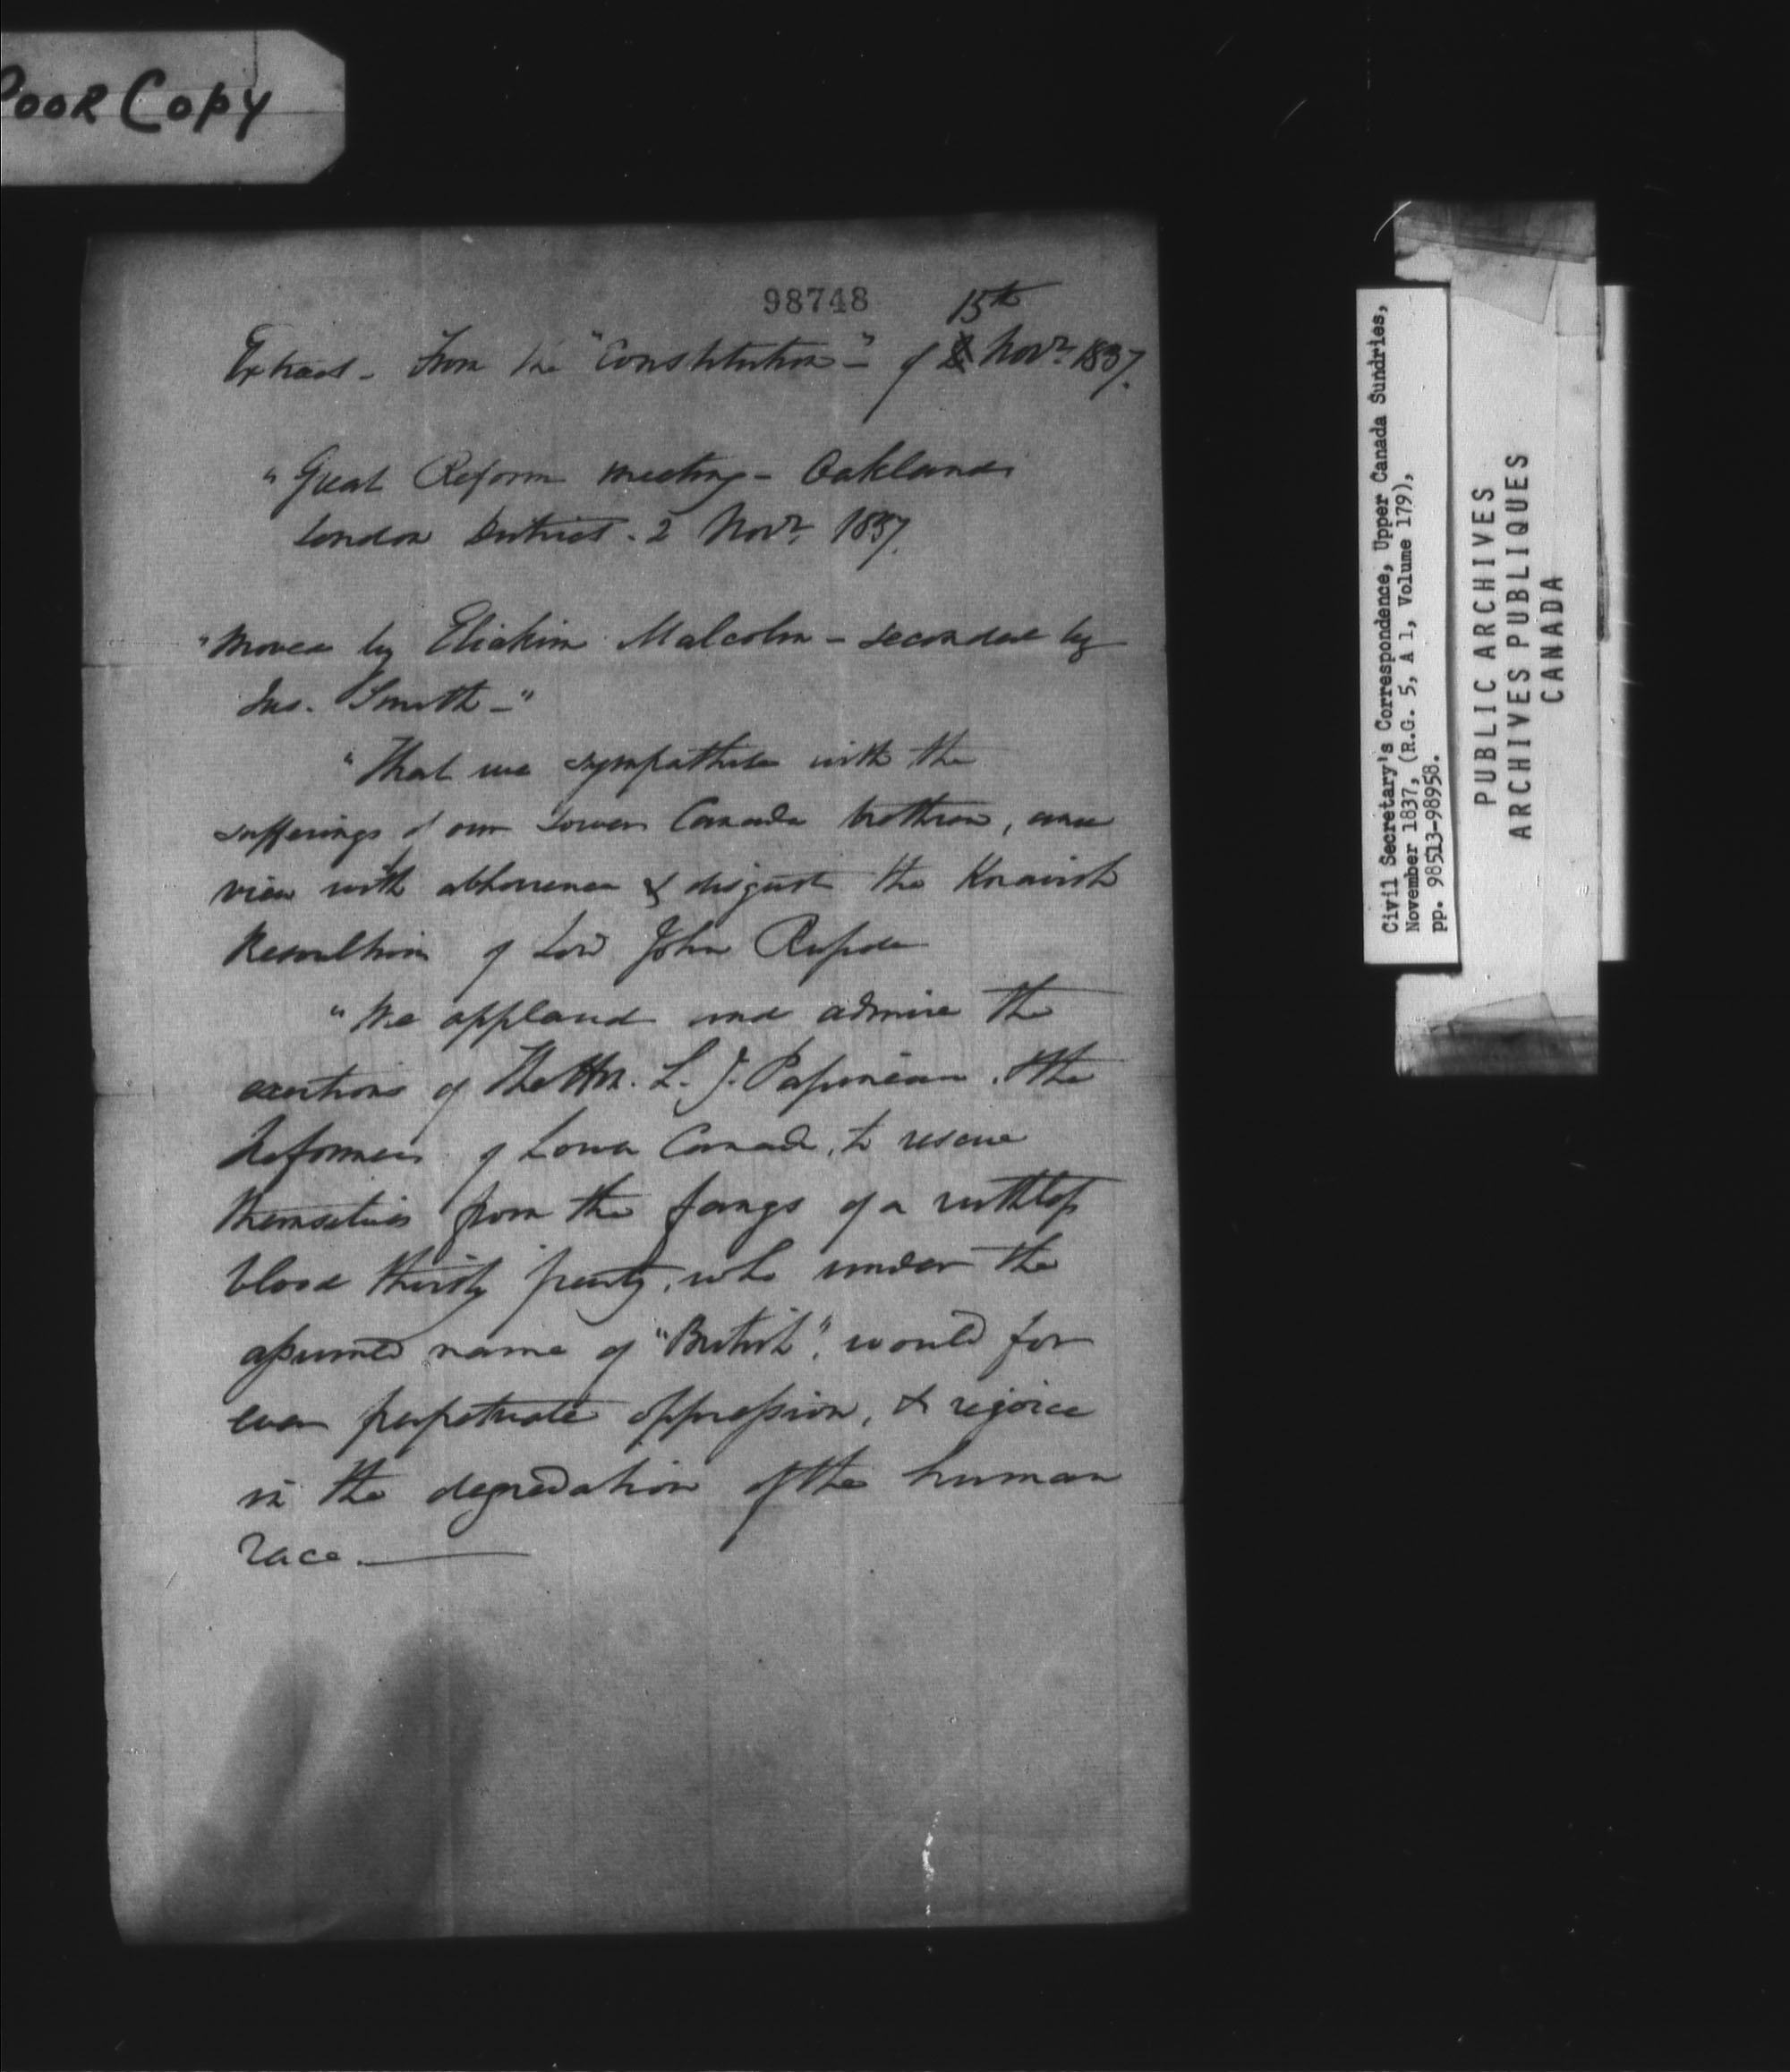 Poor Copy
98748
15th
Extract - From the "Constitution" - of Novr. 1837.
"Great Reform meeting - Oakland
London District. 2 Novr. 1837.
"Moved by Eliakim Malcolm - seconded by
Jas. Smith -"
"That we sympathise with the
sufferings of our Lower Canada brethren, and
view with abhorrence & disgust the Knavish
Resolutions of Lord John Russell
"We applaud and admire the
exertions of The Hon. L. J. Papineau, & the
Reformers of Lower Canada, to rescue
themselves from the fangs of a ruthless
blood thirsty party, who under the
assumed name of "British", would for
ever perpetuate oppression, & rejoice
in the degredation of the human
race.
Civil Secretary's Correspondence, Upper Canada Sundries,
November 1837, (R.G. 5, A 1, Volume 179),
pp. 98513-98958.
PUBLIC ARCHIVES
ARCHIVES PUBLIQUES
CANADA